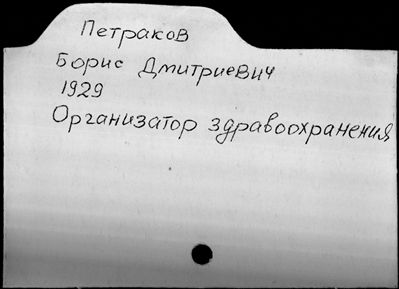 Петраков
Борис Дмитриевич
1929
Организатор здравоохранения